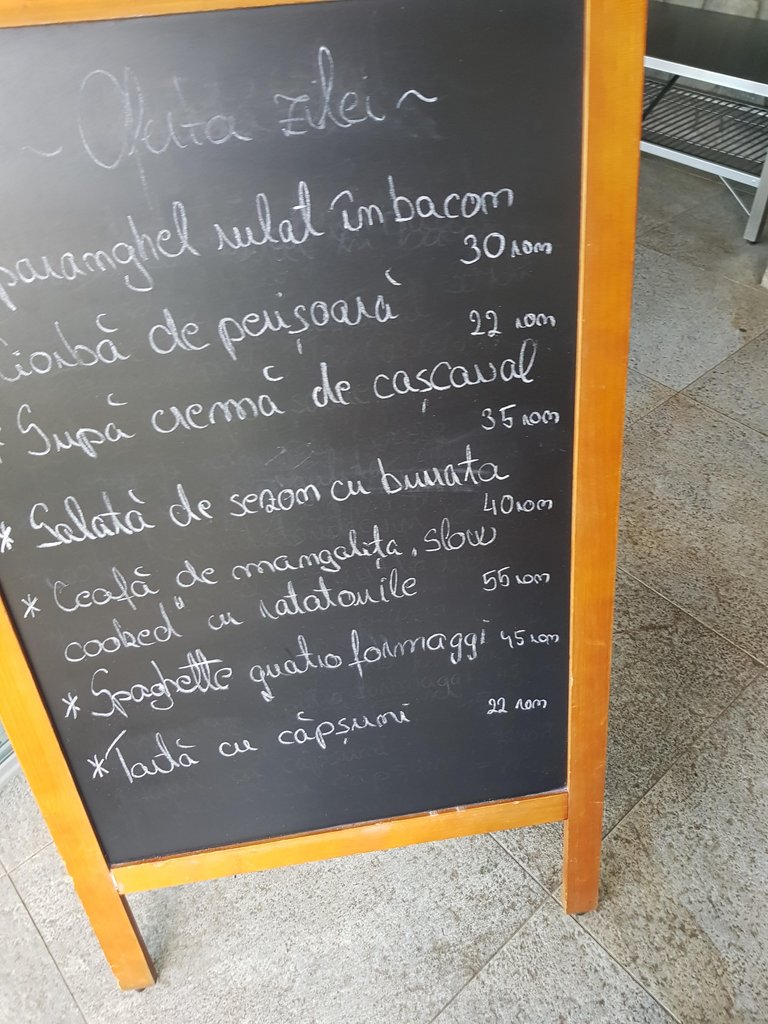 ~ Oferta zilei ~
sparanghel rulat în bacon
30 ron
Ciorbă de perișoară
22 ron
* Supă cremă de cașcaval
35 ron
* Salată de sezon cu burrata
40 ron
* Ceafă de mangalița „slow
cooked" cu ratatouile
55 ron
* Spaghette quatro formaggi 45 ron
* Tartă cu căpșuni 22 ron